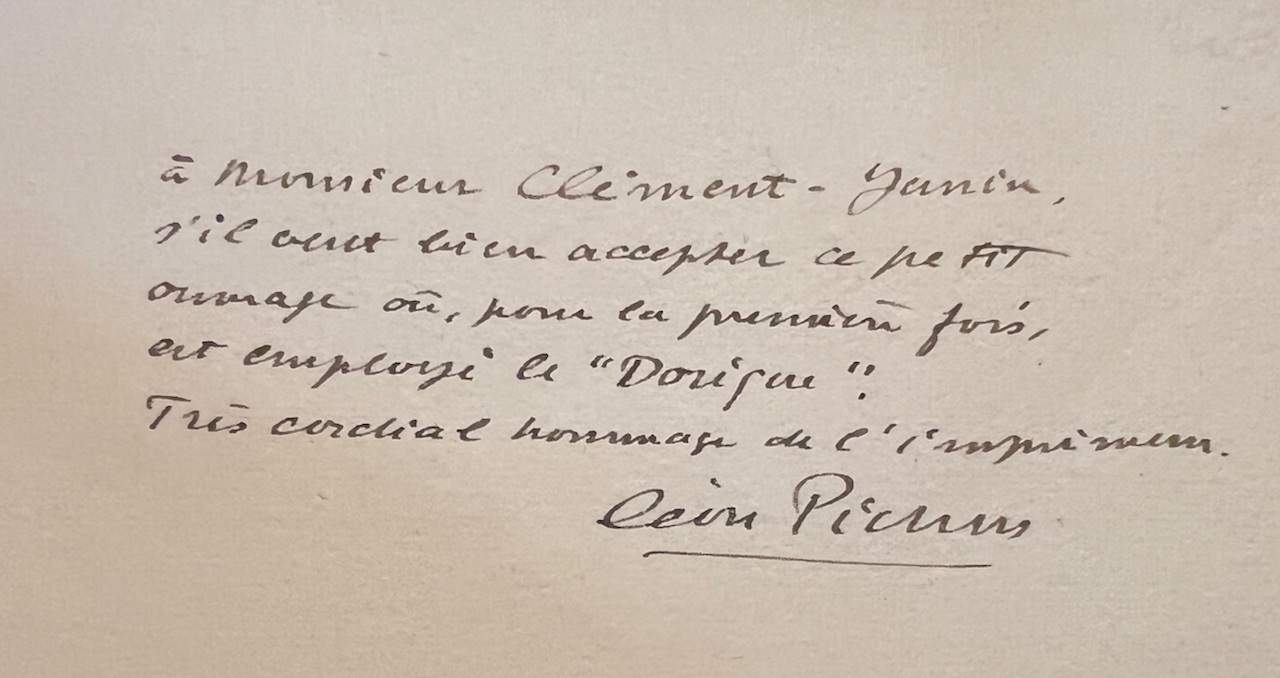 à Monsieur Clément-Janin,
s'il veut bien accepter ce petit
ouvrage où, pour la première fois,
est employé le "Dorique".
Très cordial hommage de l'imprimeur.
Léon Pichon